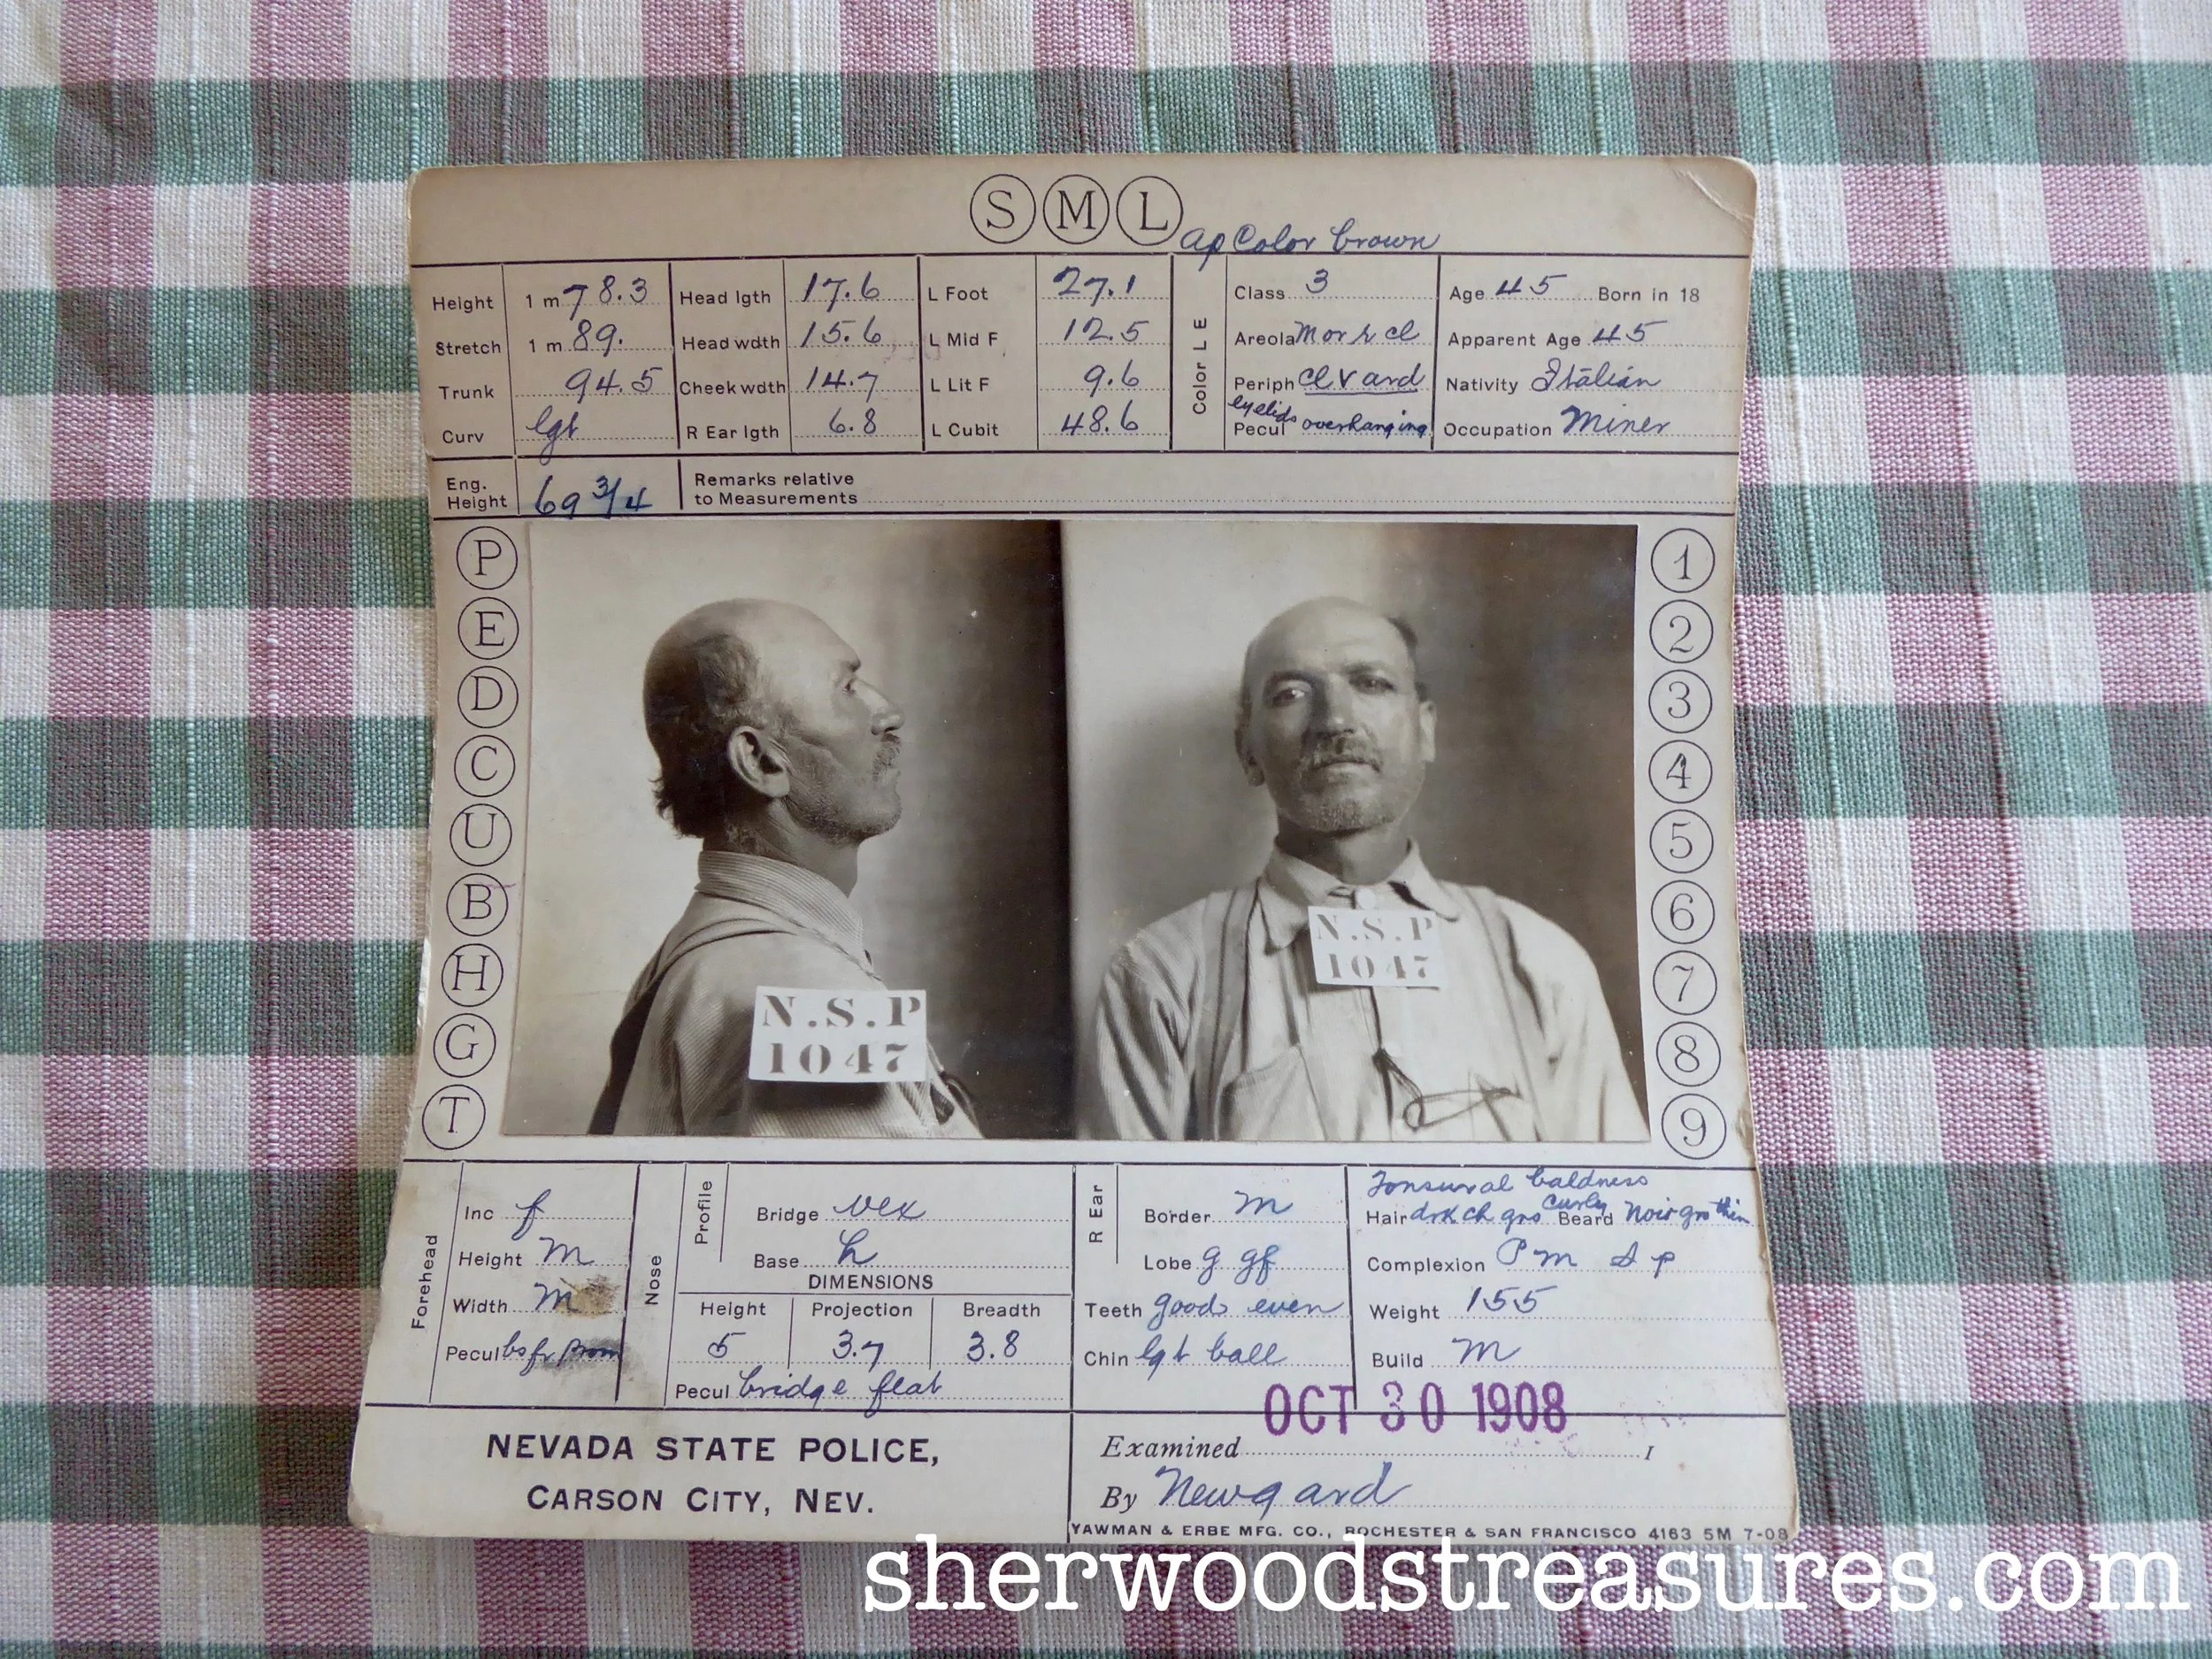 S M L
ap Color brown
Height 1 m 78.3 Head lgth 17.6 L Foot 27.1 Class 3 Age 45 Born in 18
Stretch 1 m 89. Head wdth 15.6 L Mid F 12.5 Areola Mor r cl Apparent Age 45
Trunk 94.5 Cheek wdth 14.7 L Lit F 9.6 Periph cl v ard Nativity Italian
Curv lgt R Ear lgth 6.8 L Cubit 48.6 Pecul eyelids overhanging Occupation Miner
Color L E
Eng. Height 69 3/4 Remarks relative
to Measurements
P
E
D
C
U
B
H
G
T
N.S.P
1047
N.S.P
1047
1
2
3
4
5
6
7
8
9
Forehead
Inc f
Height m
Width m
Pecul bs fr prom
Nose
Profile
Bridge vex
Base h
DIMENSIONS
Height Projection Breadth
5 3.7 3.8
Pecul bridge flat
R Ear
Border m
Lobe g gf
Teeth good even
Chin lgt ball
Tonsural baldness
Hair drk ch gro curly Beard Noir gro thin
Complexion P m S p
Weight 155
Build m
OCT 30 1908
NEVADA STATE POLICE,
CARSON CITY, NEV.
Examined 1
By Newgard
YAWMAN & ERBE MFG. CO., ROCHESTER & SAN FRANCISCO 4163 5M 7-08
sherwoodstreasures.com